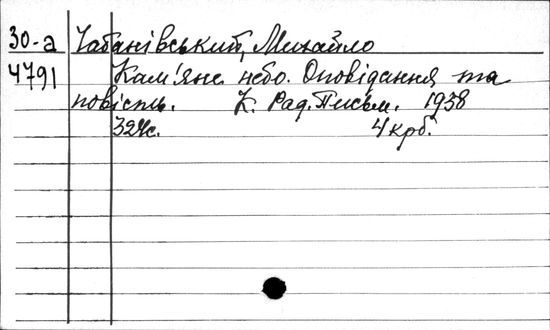 30-а Чабанівський, Михайло
4791 Кам'яне небо. Оповідання та
повість. К. Рад. Письм. 1938
324с. 4 крб.